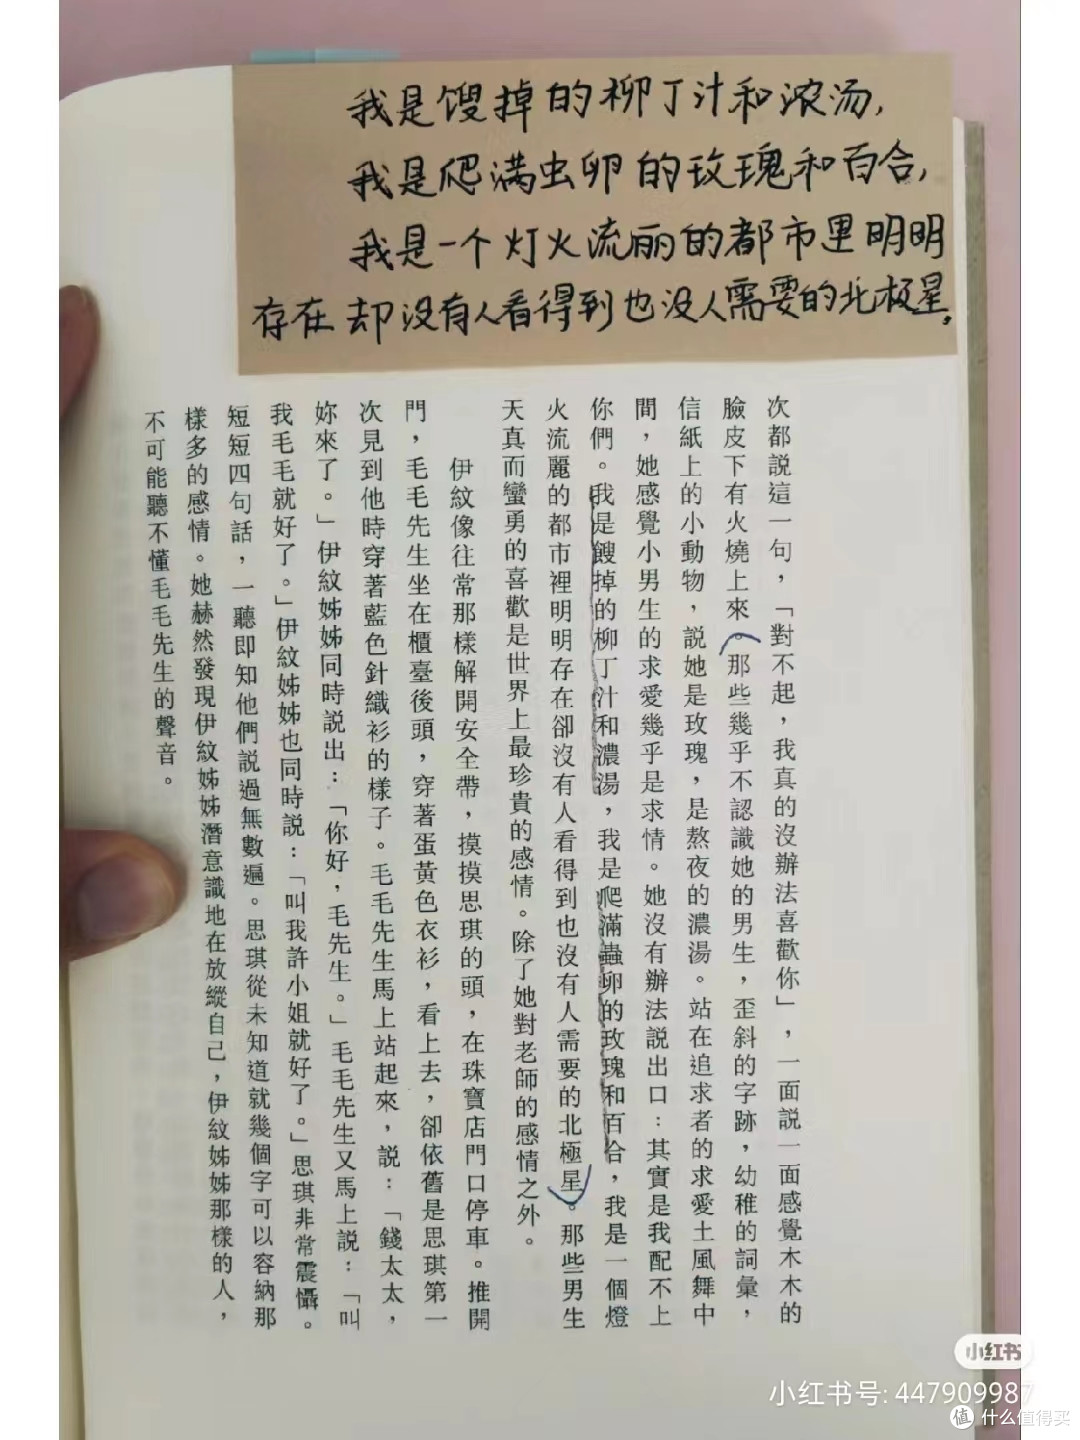 我是馊掉的柳丁汁和浓汤,
我是爬满虫卵的玫瑰和百合,
我是一个灯火流丽的都市里明明
存在却没有人看得到也没人需要的北极星。
次都說這一句，「對不起，我真的沒辦法喜歡你」，一面說一面感覺木木的
臉皮下有火燒上來。那些幾乎不認識她的男生，歪斜的字跡，幼稚的詞彙，
信紙上的小動物，說她是玫瑰，是熬夜的濃湯。站在追求者的求愛土風舞中
間，她感覺小男生的求愛幾乎是求情。她沒有辦法說出口：其實是我配不上
你們。我是餿掉的柳丁汁和濃湯，我是爬滿蟲卵的玫瑰和百合，我是一個燈
火流麗的都市裡明明存在卻沒有人看得到也沒有人需要的北極星。那些男生
天真而蠻勇的喜歡是世界上最珍貴的感情。除了她對老師的感情之外。
伊紋像往常那樣解開安全帶，摸摸思琪的頭，在珠寶店門口停車。推開
門，毛毛先生坐在櫃臺後頭，穿著蛋黃色衣衫，看上去，卻依舊是思琪第一
次見到他時穿著藍色針織衫的樣子。毛毛先生馬上站起來，說：「錢太太，
妳來了。」伊紋姊姊同時說出：「你好，毛先生。」毛毛先生又馬上說：「叫
我毛毛就好了。」伊紋姊姊也同時說：「叫我許小姐就好了。」思琪非常震懾。
短短四句話，一聽即知他們說過無數遍。思琪從未知道就幾個字可以容納那
樣多的感情。她赫然發現伊紋姊姊潛意識地在放縱自己，伊紋姊姊那樣的人，
不可能聽不懂毛毛先生的聲音。
小红书
小红书号: 447909987
值 什么值得买